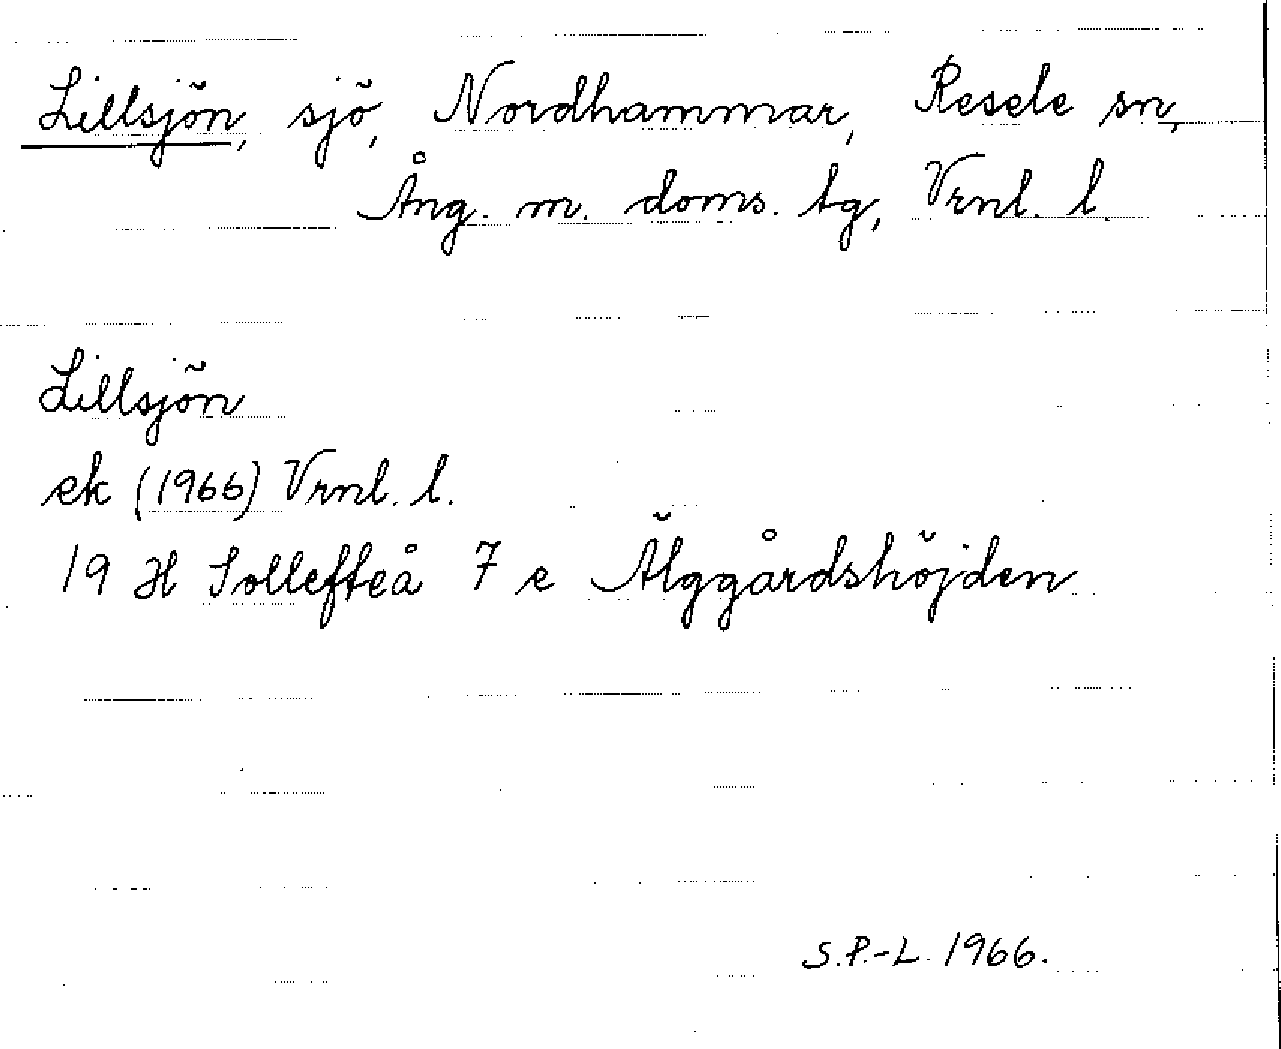 Lillsjön, sjö, Nordhammar, Resele sn,
Ång. m. doms. tg, Vrnl. l.
Lillsjön
ek (1966) Vrnl. l.
19 H Sollefteå 7 e Älggårdshöjden
S.P.-L. 1966.